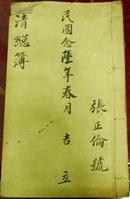 張正倫號
民國念陸年春月吉立
清總簿